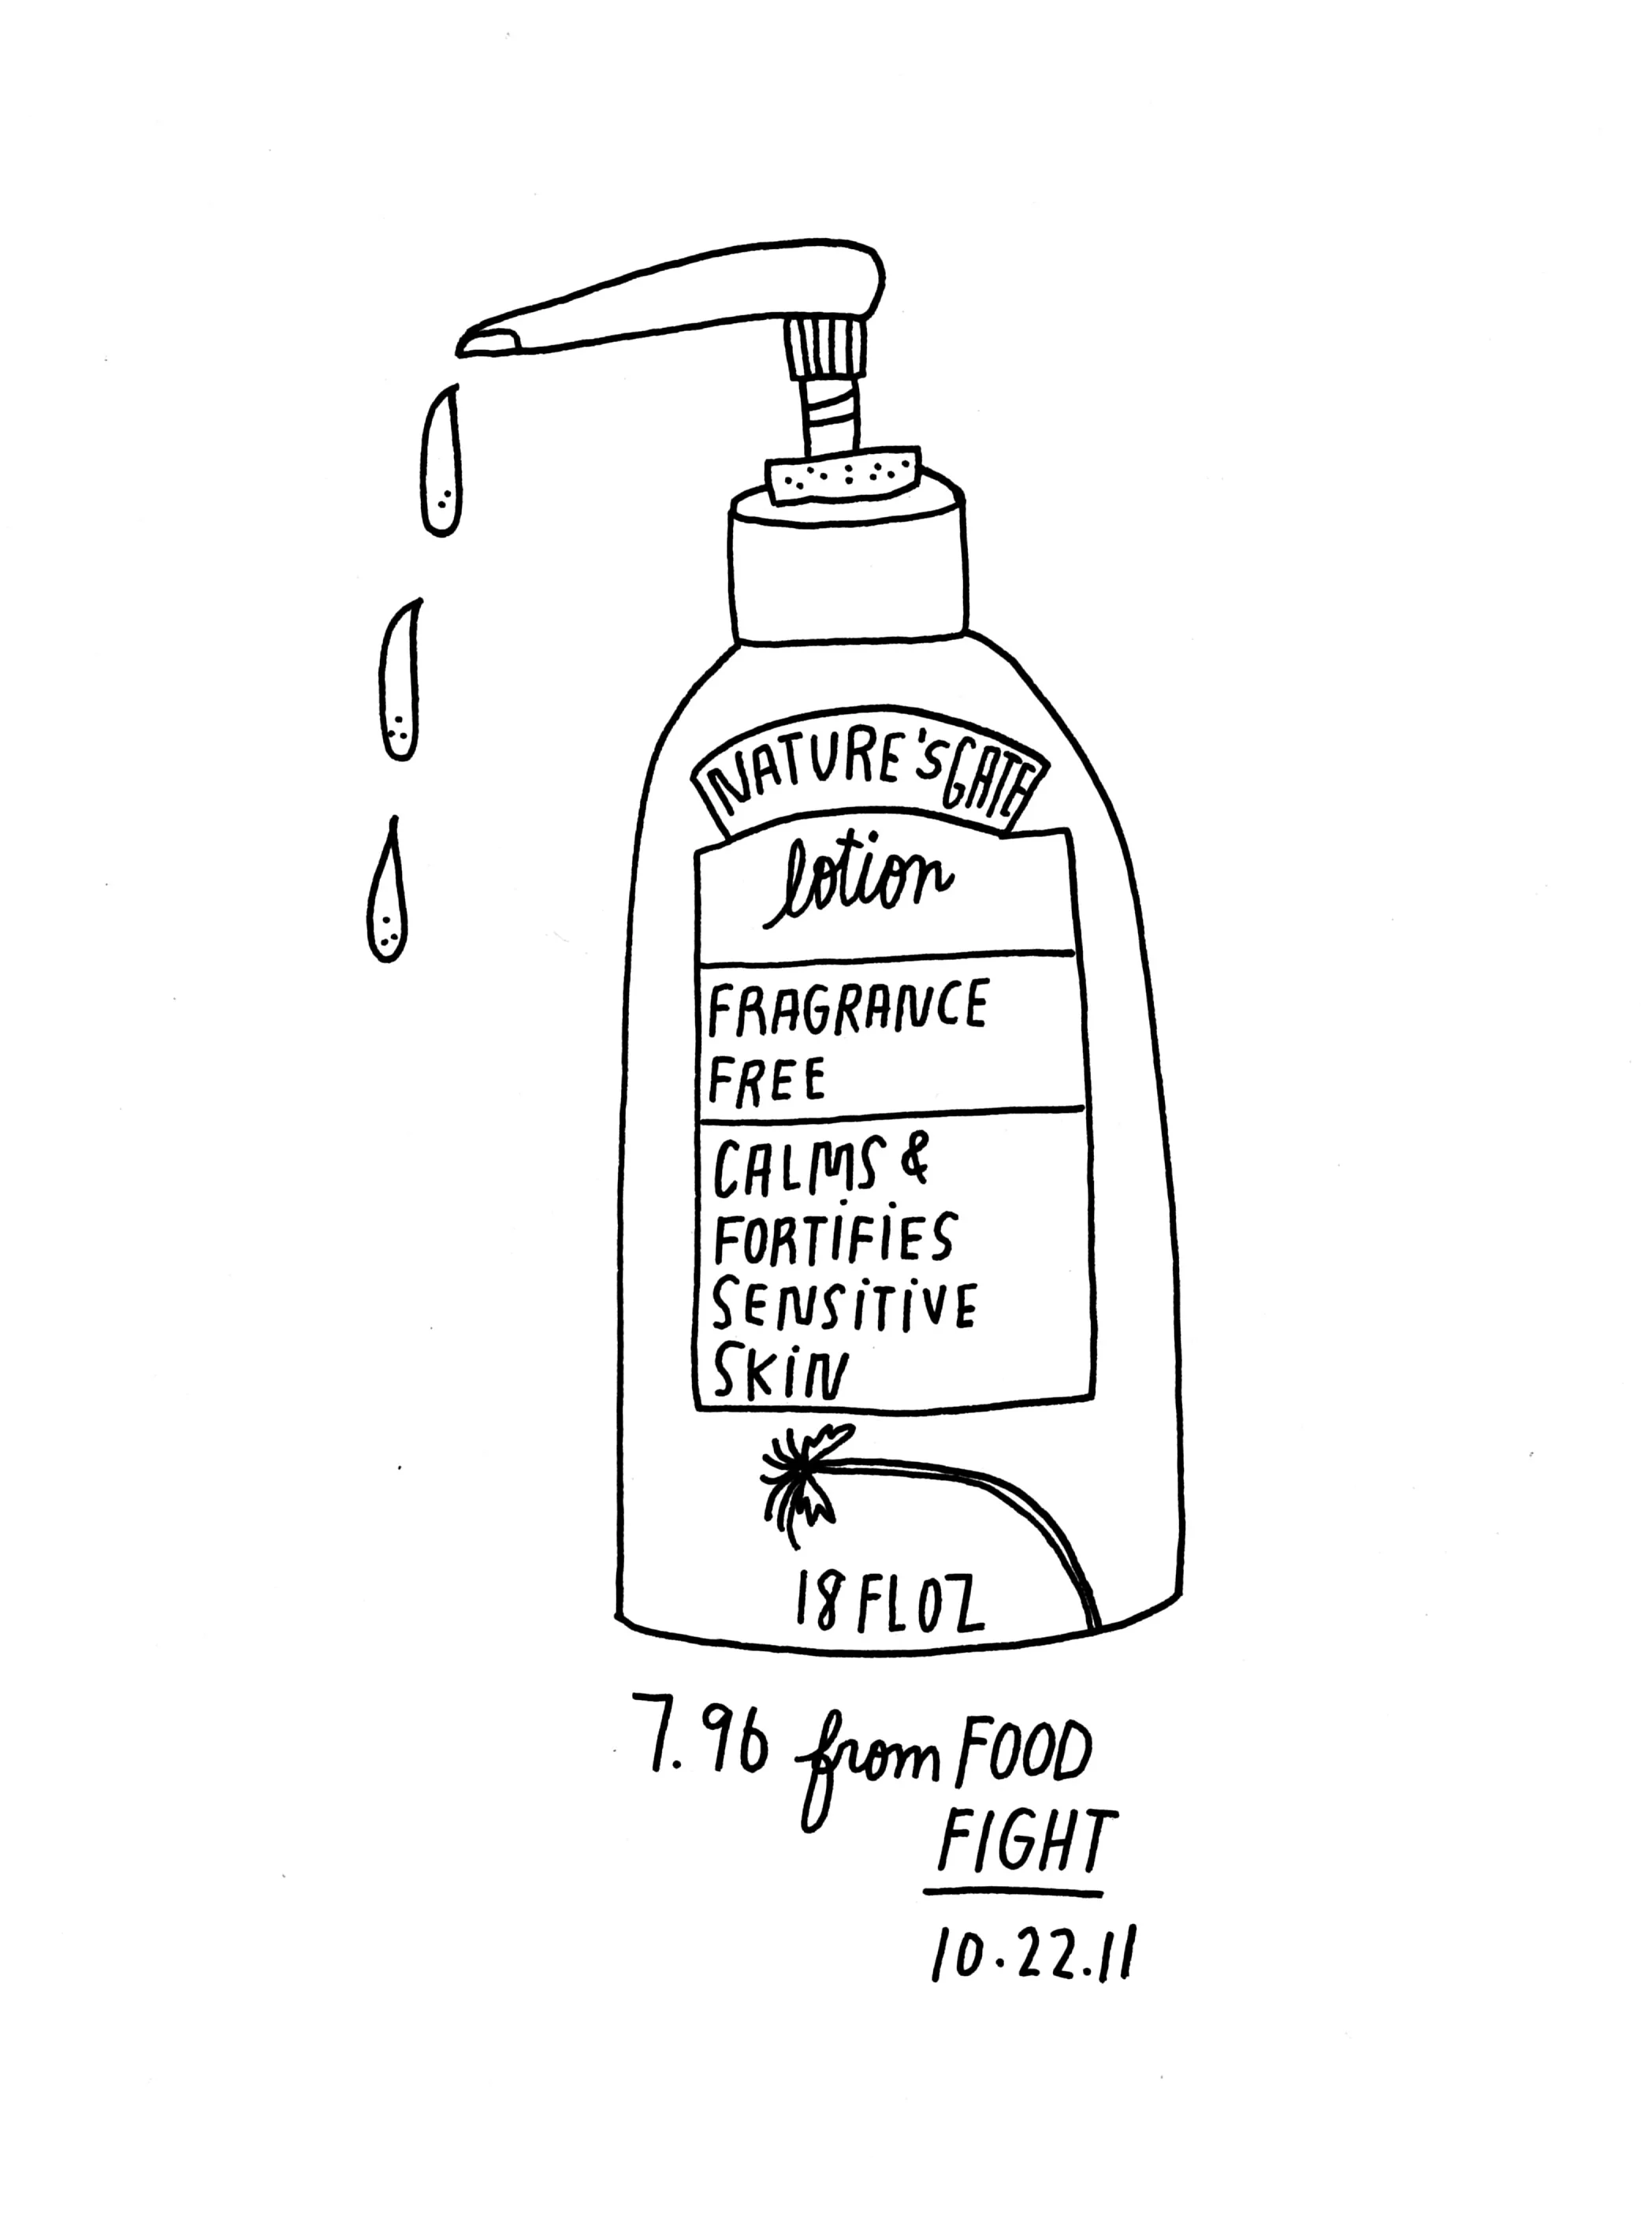 NATURE'S GATE
lotion
FRAGRANCE
FREE
CALMS &
FORTIFIES
SENSITIVE
SKIN
18 FL OZ
7.96 from FOOD
FIGHT
10.22.11